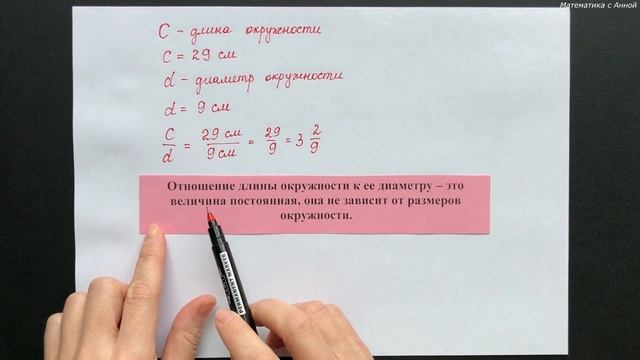 Математика с Анной
C – длина окружности
C = 29 см
d – диаметр окружности
d = 9 см
C/d = 29 см/9 см = 29/9 = 3 2/9
Отношение длины окружности к ее диаметру – это
величина постоянная, она не зависит от размеров
окружности.